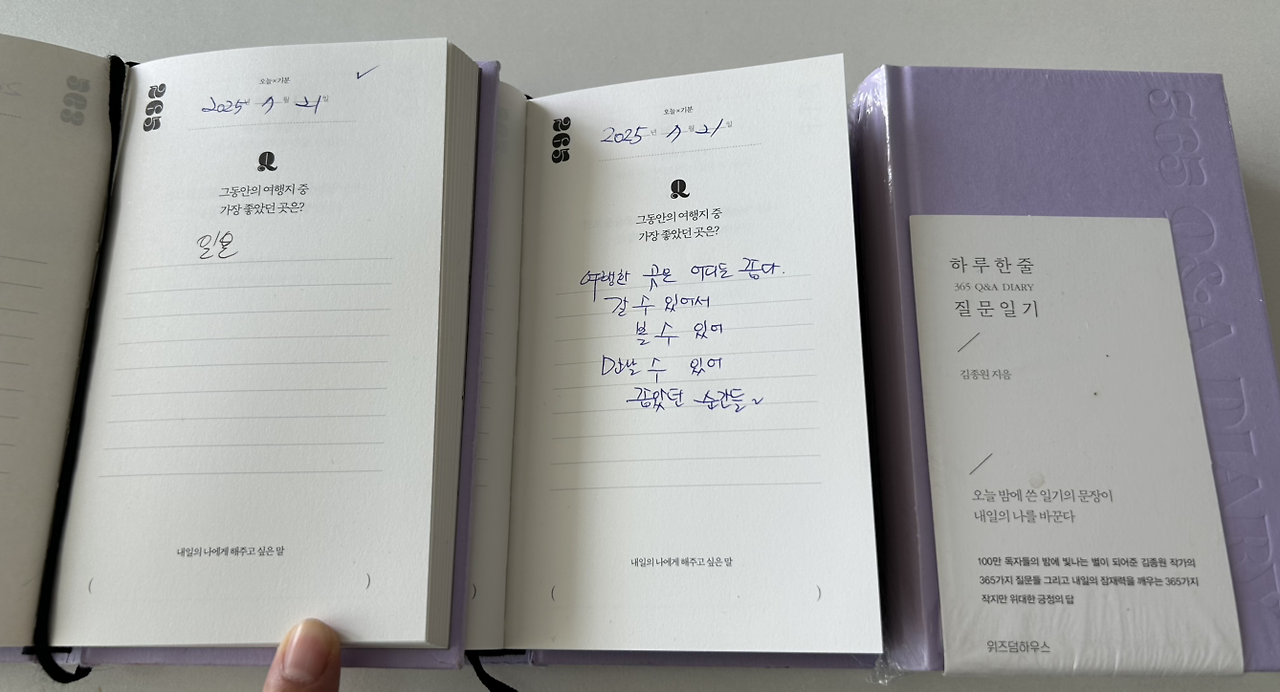 363
265
오늘×기분
2025년 7월 21일
Q
그동안의 여행지 중
가장 좋았던 곳은?
내일의 나에게 해주고 싶은 말
( )
265
오늘×기분
2025년 7월 21일
Q
그동안의 여행지 중
가장 좋았던 곳은?
여행한 곳은 어디든 좋다.
갈 수 있어서
볼 수 있어
만날 수 있어
좋았던 순간들
내일의 나에게 해주고 싶은 말
( )
365 Q&A DIARY
하루 한 줄
365 Q&A DIARY
질문 일기
김종원 지음
오늘 밤에 쓴 일기의 문장이
내일의 나를 바꾼다
100만 독자들의 밤에 빛나는 별이 되어준 김종원 작가의
365가지 질문들 그리고 내일의 잠재력을 깨우는 365가지
작지만 위대한 긍정의 답
위즈덤하우스